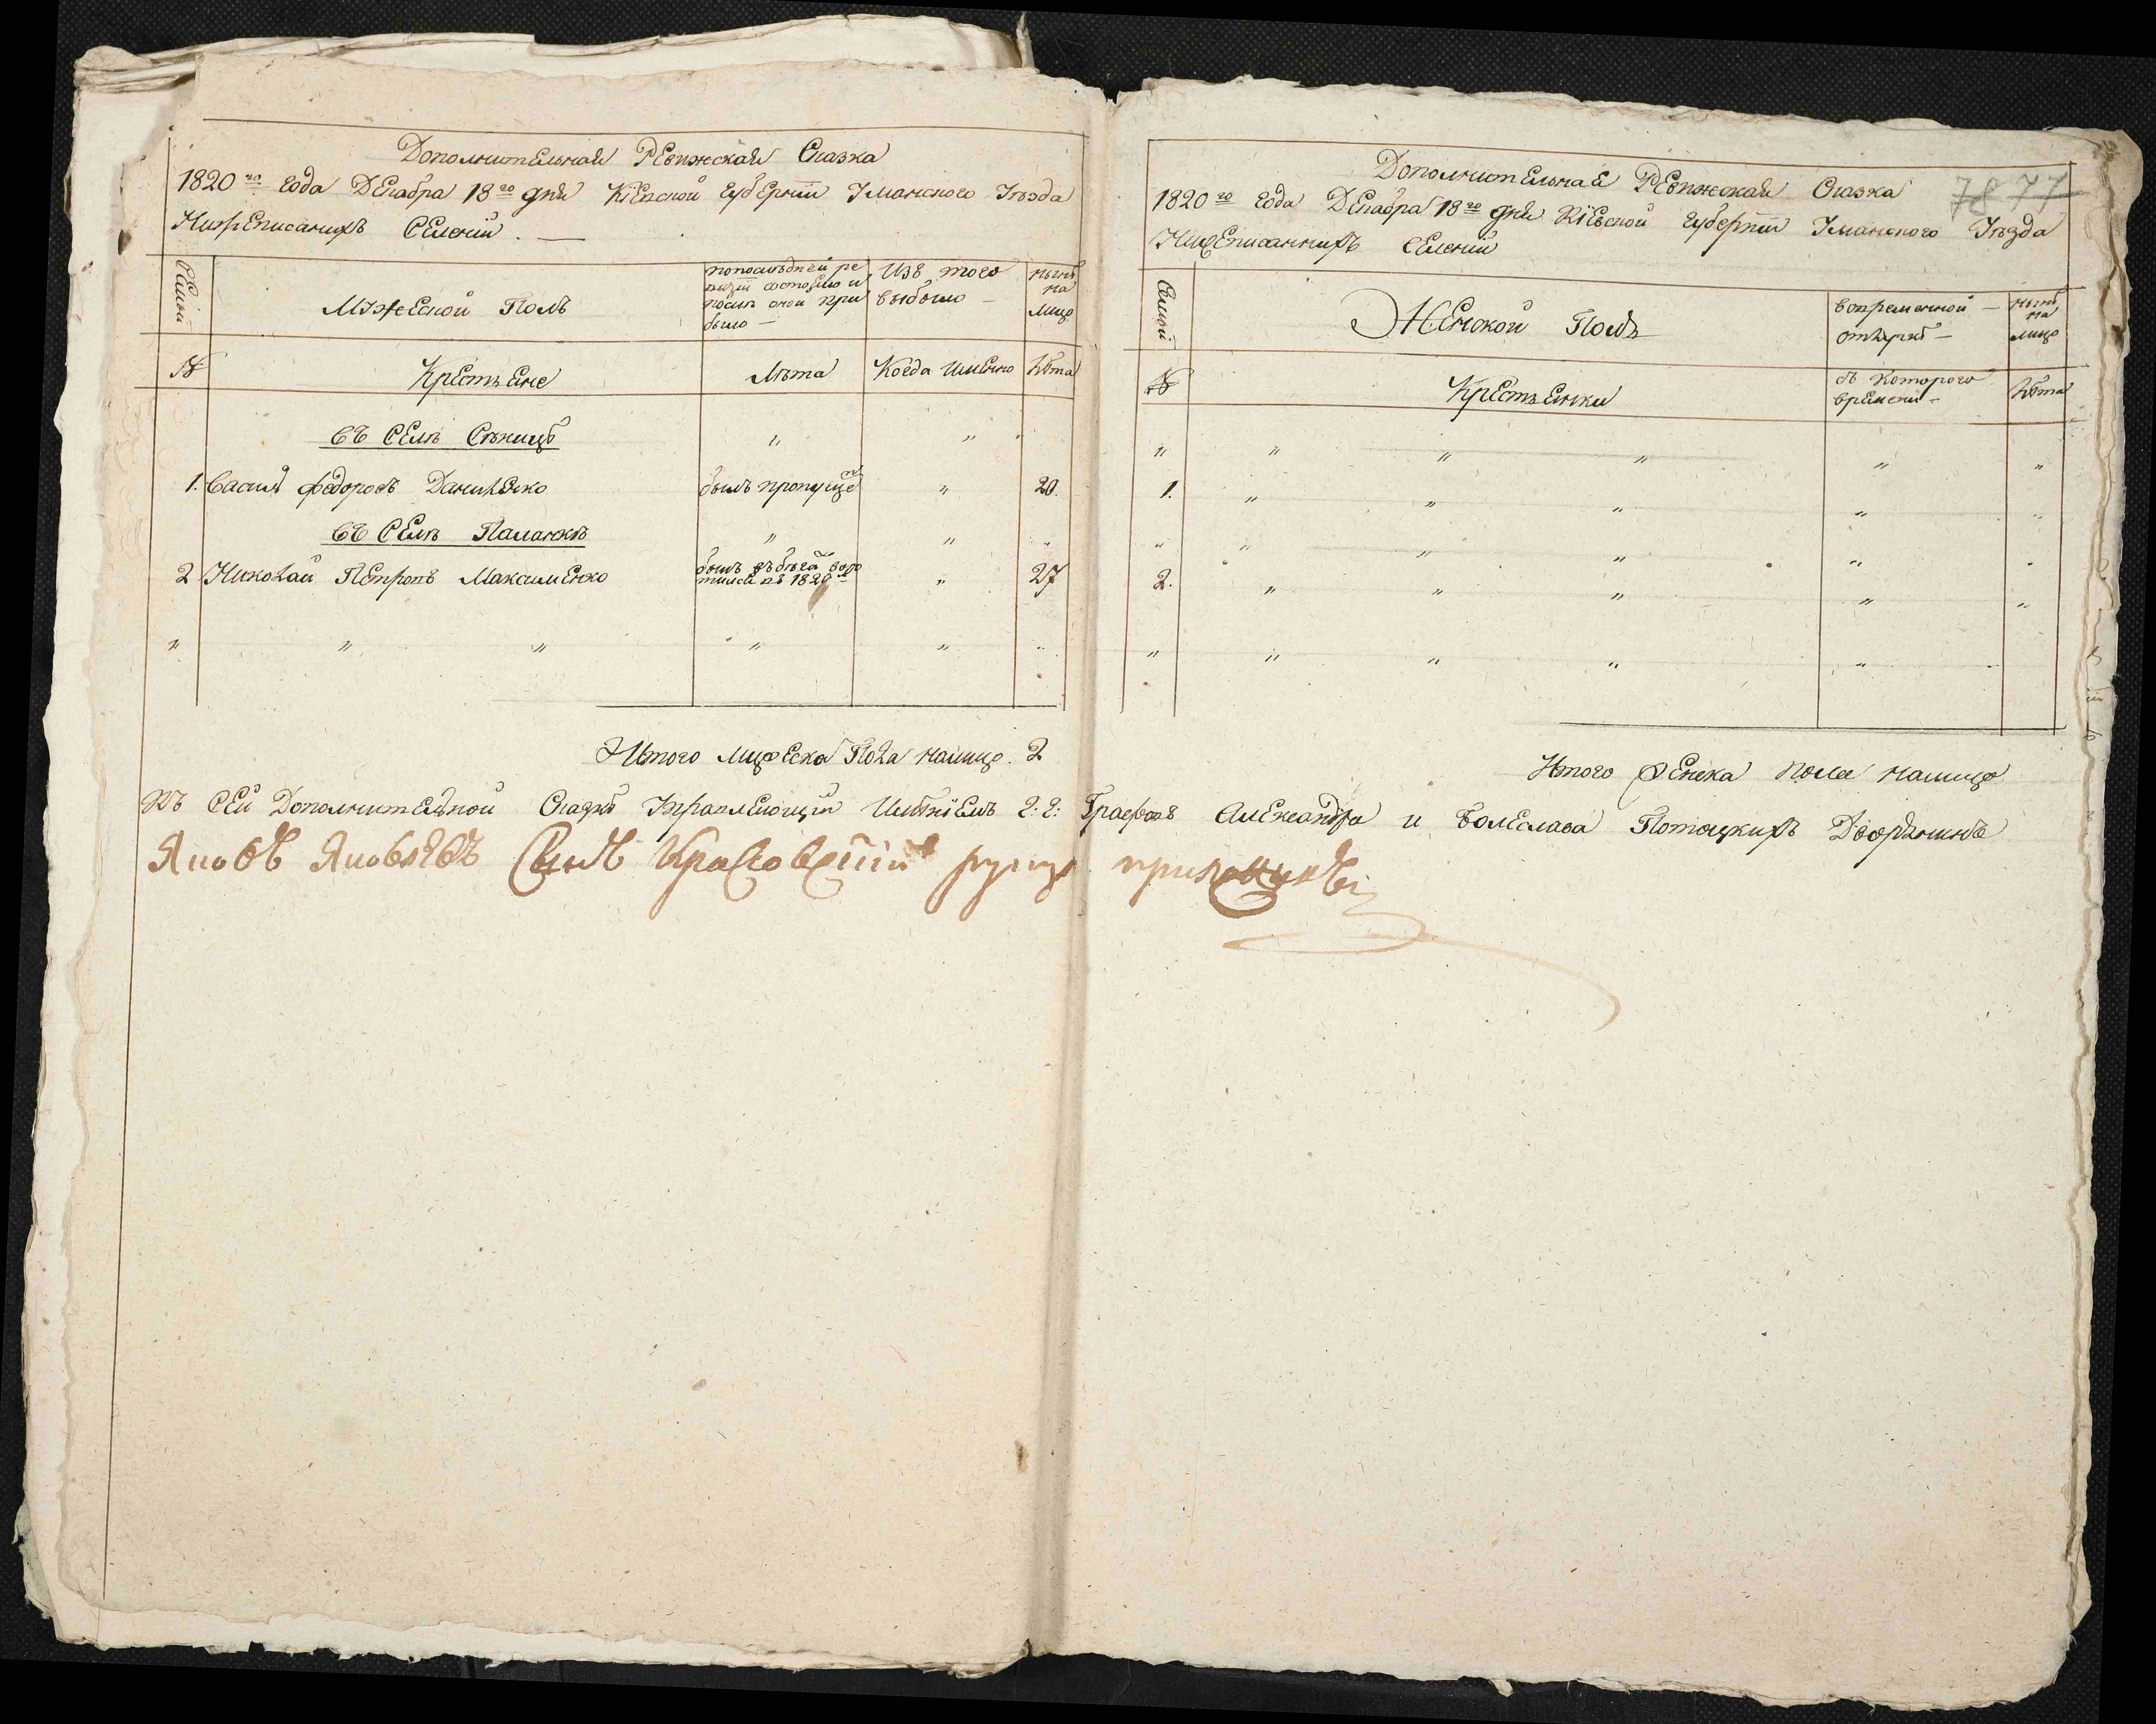 Дополнительная Ревижская Сказка
1820го года Декабря 18го дня Кіевской Губерніи Уманского Уѣзда
Нижеписанихъ Селеній. —
Семьи
Мужеской Полъ
по последней ре
визіи состояло и
послѣ оной при
было —
Изъ того
выбыло —
нынѣ
на
лицо
№
Крестьене
Лѣта
Когда именно
Лѣта
Въ Селѣ Сѣницѣ
" "
1. Василь Федоровъ Даниленко
былъ пропуще
"
20.
Въ Селѣ Паланкѣ
" " "
2 Николай Петровъ Максименко
былъ въ бѣгах воро
тился въ 1820м
"
27
" " " " " "
Итого Мужеска Пола налицо. 2
Дополнительная Ревижская Сказка
78 77
1820го года Декабря 18го дня Кіевской Губерніи Уманского Уѣзда
Нижеписаннихъ Селеній
Семьи
Женской Полъ
Во временной —
отлучкѣ —
нынѣ
на
лицо
№
Крестьенки
съ которого
времени —
Лѣта
" " " " " "
1. " " " " "
" " " " " "
2. " " " " "
" " " " "
Итого Женска пола налицо
Къ Сей Дополнительной Сказкѣ Управляющій Имѣніемъ Г: Г: Графовъ Александра и Болеслава Потоцкихъ Дворянинъ
Яковъ Яковлевъ Синъ Красовскій руку приложилъ